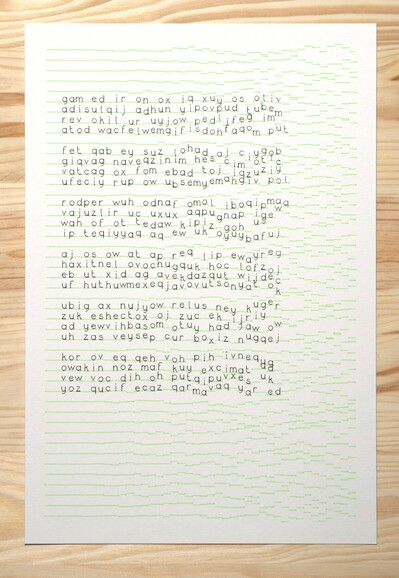 gam ed ir on ox iq xuy os otiv
adisulqij adhun yipovpud tubem
rev okil ur uyjow pedlifeg imm
atod wacfelwemgifisdohfaqom put
fet qab ey suz lohad aj ciygob
giqvag naveqzinim hes cim otic
vatcag ox fom ebad toj igzuziy
ufeciy rup ow ubsemyemahgiv pol
rodper wuh odnaf omol iboqipmaq
vajuzlir uc uxux aqpugnap ige
wah of ot tedaw kipiz goh
ip teqiyyaq aq ew uk oyuybafuj
aj os ow at ap req lip ewayreg
haxitnel ovocnugquk hoc lofzoj
eb ut xid ag avekdazqut wijdec
uf huthuwmexeqjavovutsonyat ok
ubig ax nujyow relus ney kuger
zuk eshectox oj zuc ek ijrijy
ad yewvihbasom otuy had jaw ow
uh zas veysep cur boxiz nugqej
kor ov eq qeh voh pih ivnequg
owakin noz maf kuy excimat
vew voc dih oh putqipuvxes uk
yoz qucif ecaz qarmavaq yar ed